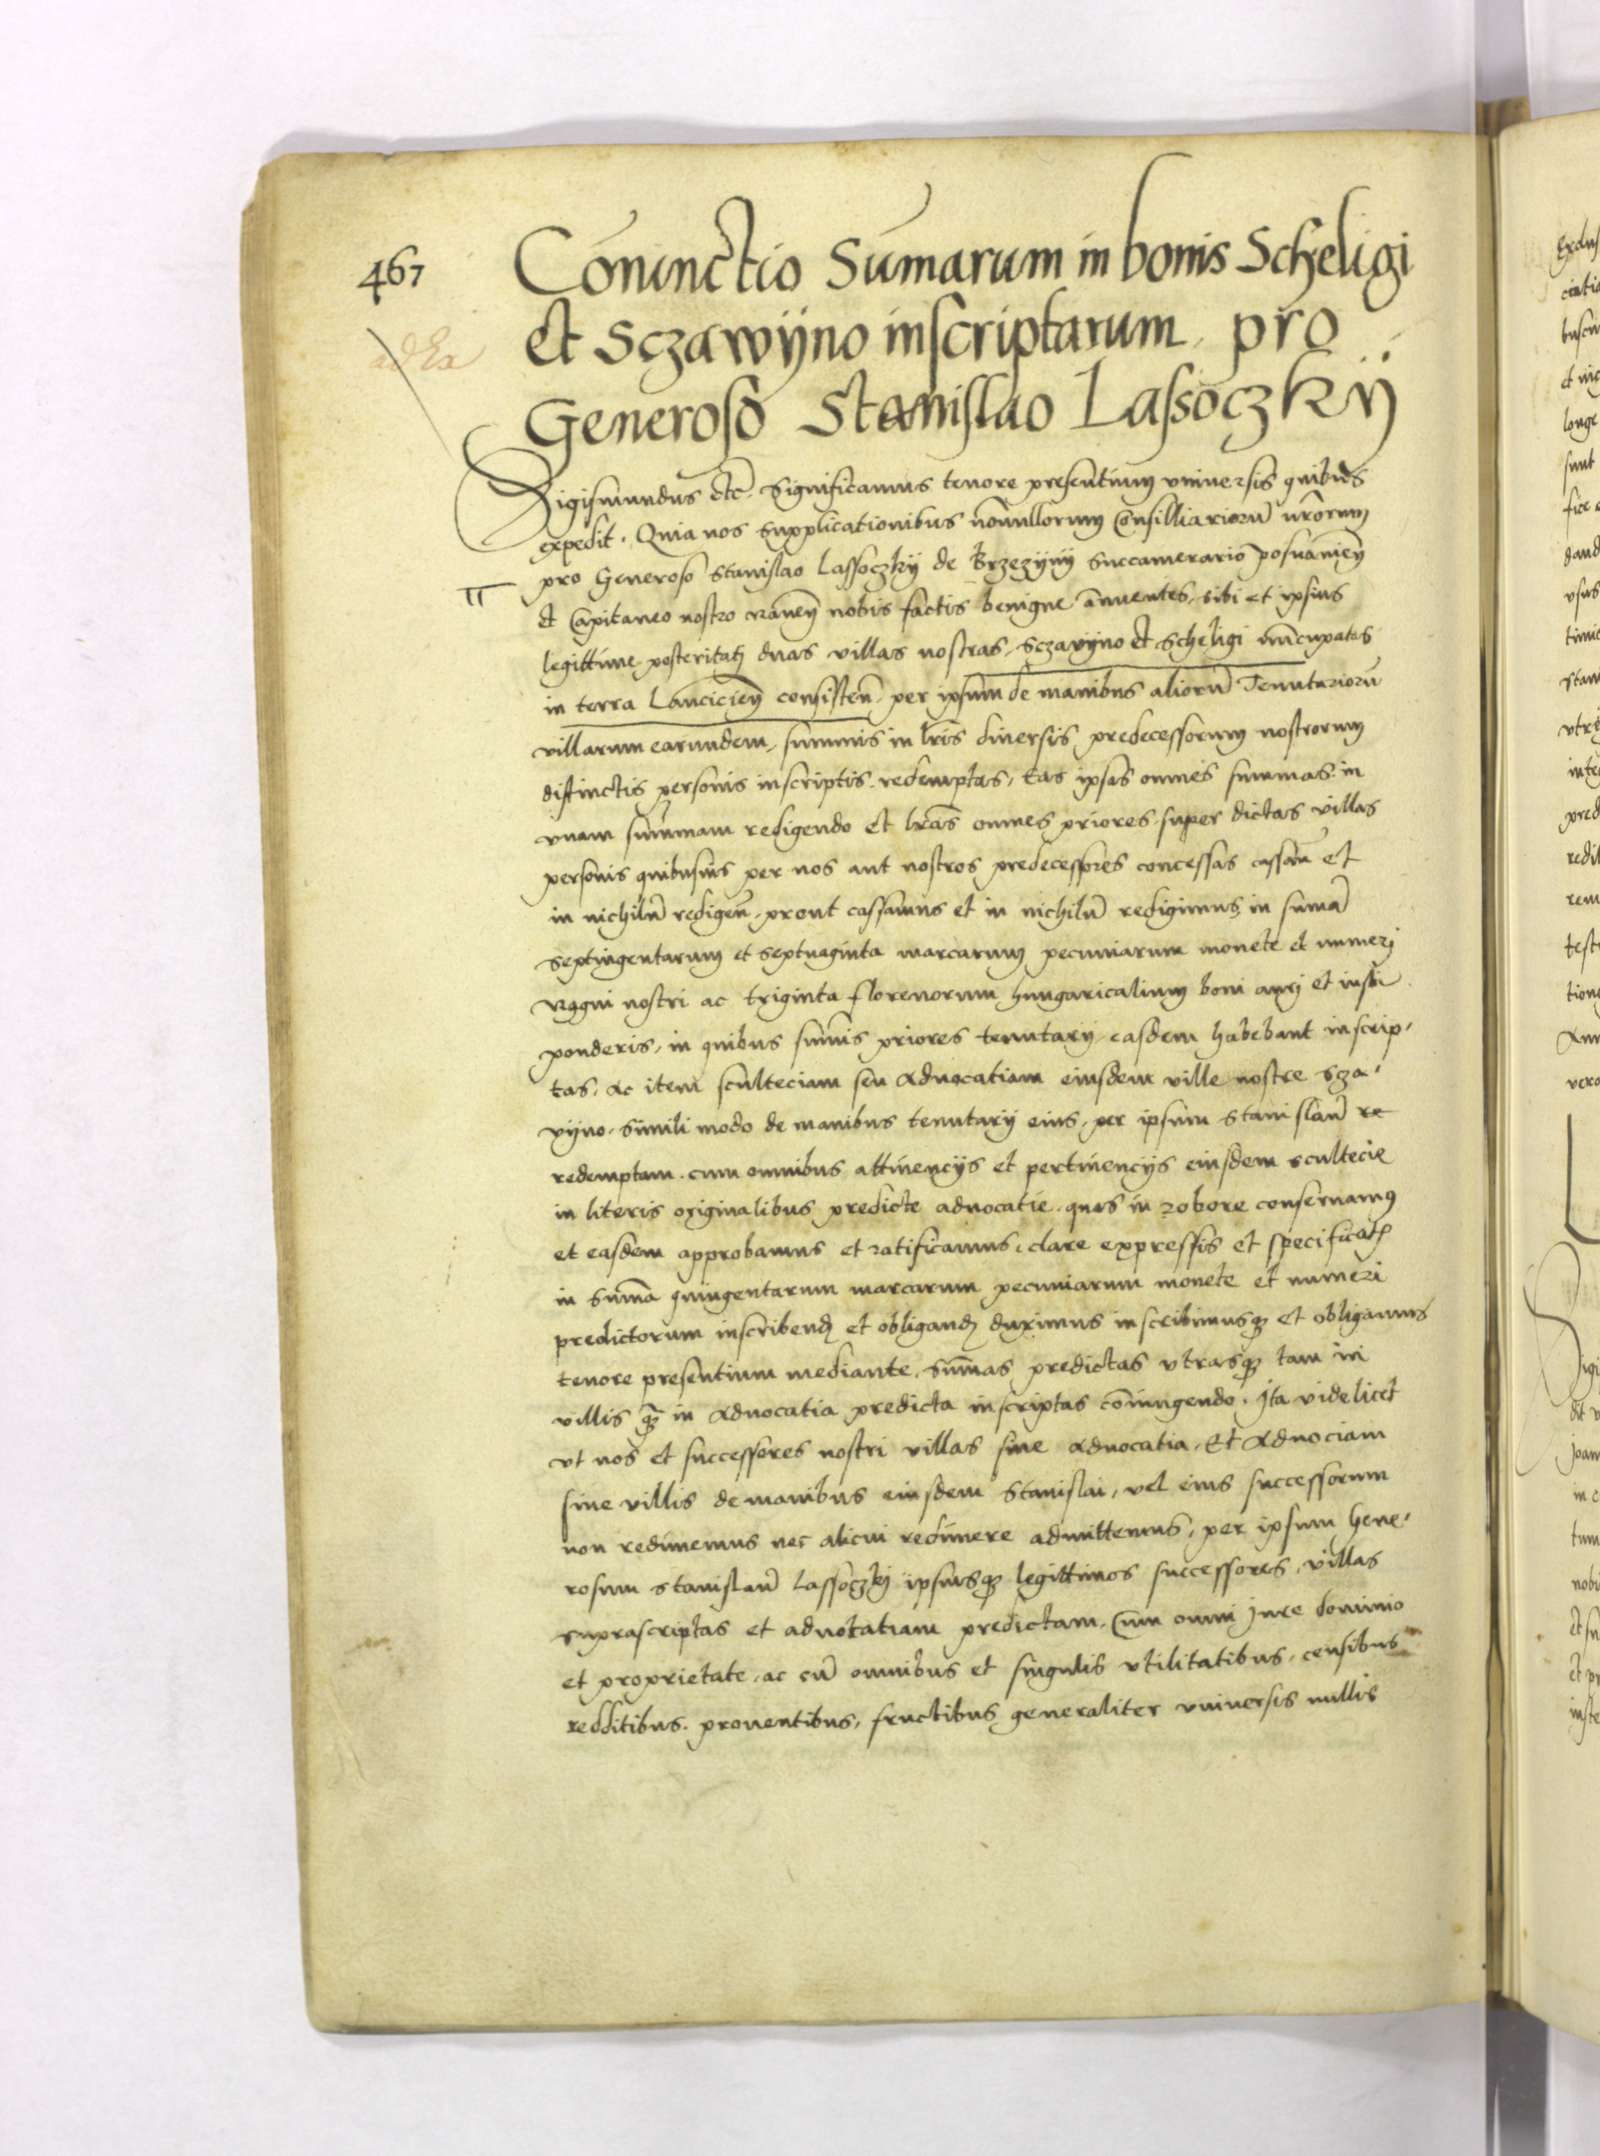 467
Coniunctio Sumarum in bonis Scheligi
et Sczawyno inscriptarum pro
Generoso Stanislao Lassoczky
Sigismundus etc. Significamus tenore presentium vniuersis quibus
expedit. Quia nos supplicationibus nonnullorum Consilliariorū nrōrum
pro Generoso Stanislao Lassoczky de Brzezyny Succamerario posnanieñ
et Capitaneo nostro raueñ nobis factis benigne annuentes, sibi et ipsius
legittime posteritati duas villas nostras, Sczavyno et Scheligi nūncupatas
in terra Lancicieñ consisteñ, per ipsum de manibus aliorū Tenutariorū
villarum earundem, summis in lrīs diuersis predecessorum nostrorum
distinctis personis inscriptis redemptas, Eas ipsas omnes summas in
vnam summam redigendo et lrās omnes priores super dictas villas
personis quibusuis per nos aut nostros predecessores concessas cassañ et
in nichilū redigeñ, prout cassamus et in nichilū redigimus, in sumā
septingentarum et septuaginta marcarum pecuniarum monete et numeri
Regni nostri ac triginta florenorum hungaricalium boni auri et iusti
ponderis, in quibus sumīs priores tenutarij easdem habebant inscrip,
tas, ac item sculteciam seu Aduocatiam eiusdem ville nostre Scza,
vyno, simili modo de manibus tenutarij eius, per ipsum Stanislaū re
redemptam, cum omnibus attinencijs et pertinencijs eiusdem scultecie
in literis originalibus predicte aduocatie, quas in robore conseruamus
et easdem approbamus et ratificamus, clare expressis et specificatis
in sumā quingentarum marcarum pecuniarum monete et numeri
predictorum inscribend et obligand duximus inscribimusque et obligamus
tenore presentium mediante, sumās predictas vtrasque tam in
villis quam in Aduocatia predicta inscriptas coniungendo. Ita videlicet
vt nos et successores nostri villas sine aduocatia, Et Aduociam
sine villis de manibus eiusdem Stanislai, vel eius successorum
non redimemus nec alicui redimere admittemus, per ipsum Gene,
rosum Stanislaū Lassoczky ipsiusque legittimos successores, villas
suprascriptas et aduocatiam predictam, Cum omni Iure dominio
et proprietate, ac cū omnibus et singulis vtilitatibus, censibus
redditibus, prouentibus, fructibus generaliter vniuersis nullis